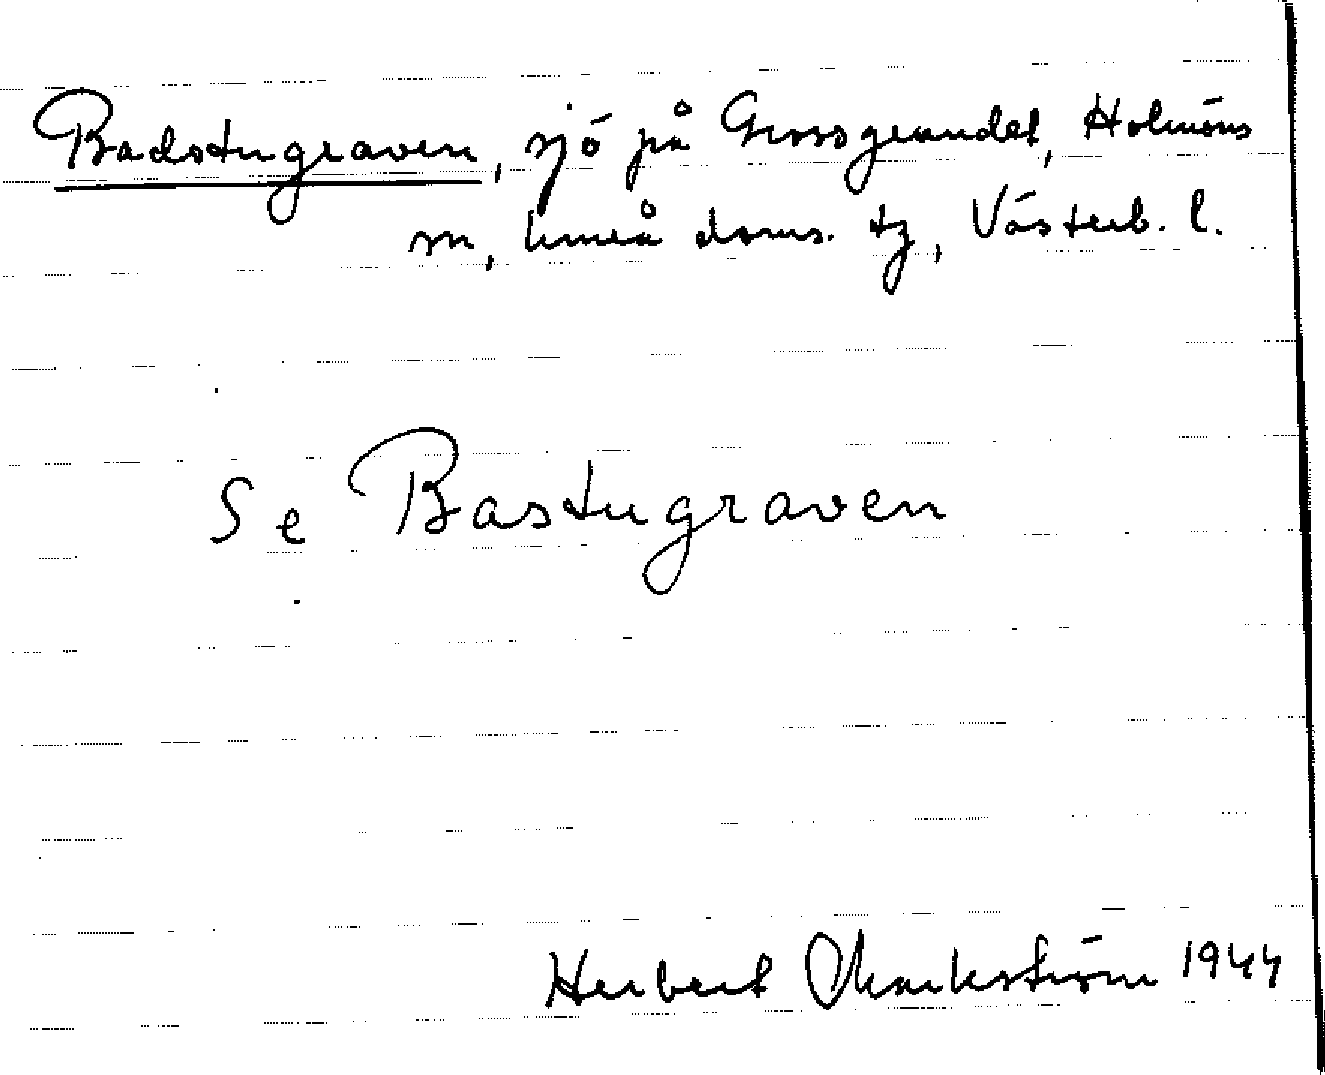 Badstugraven, sjö på Grossgrundet, Holmöns
sn, Umeå doms. tg, Västerb. l.
Se Bastugraven
Herbert Markström 1944